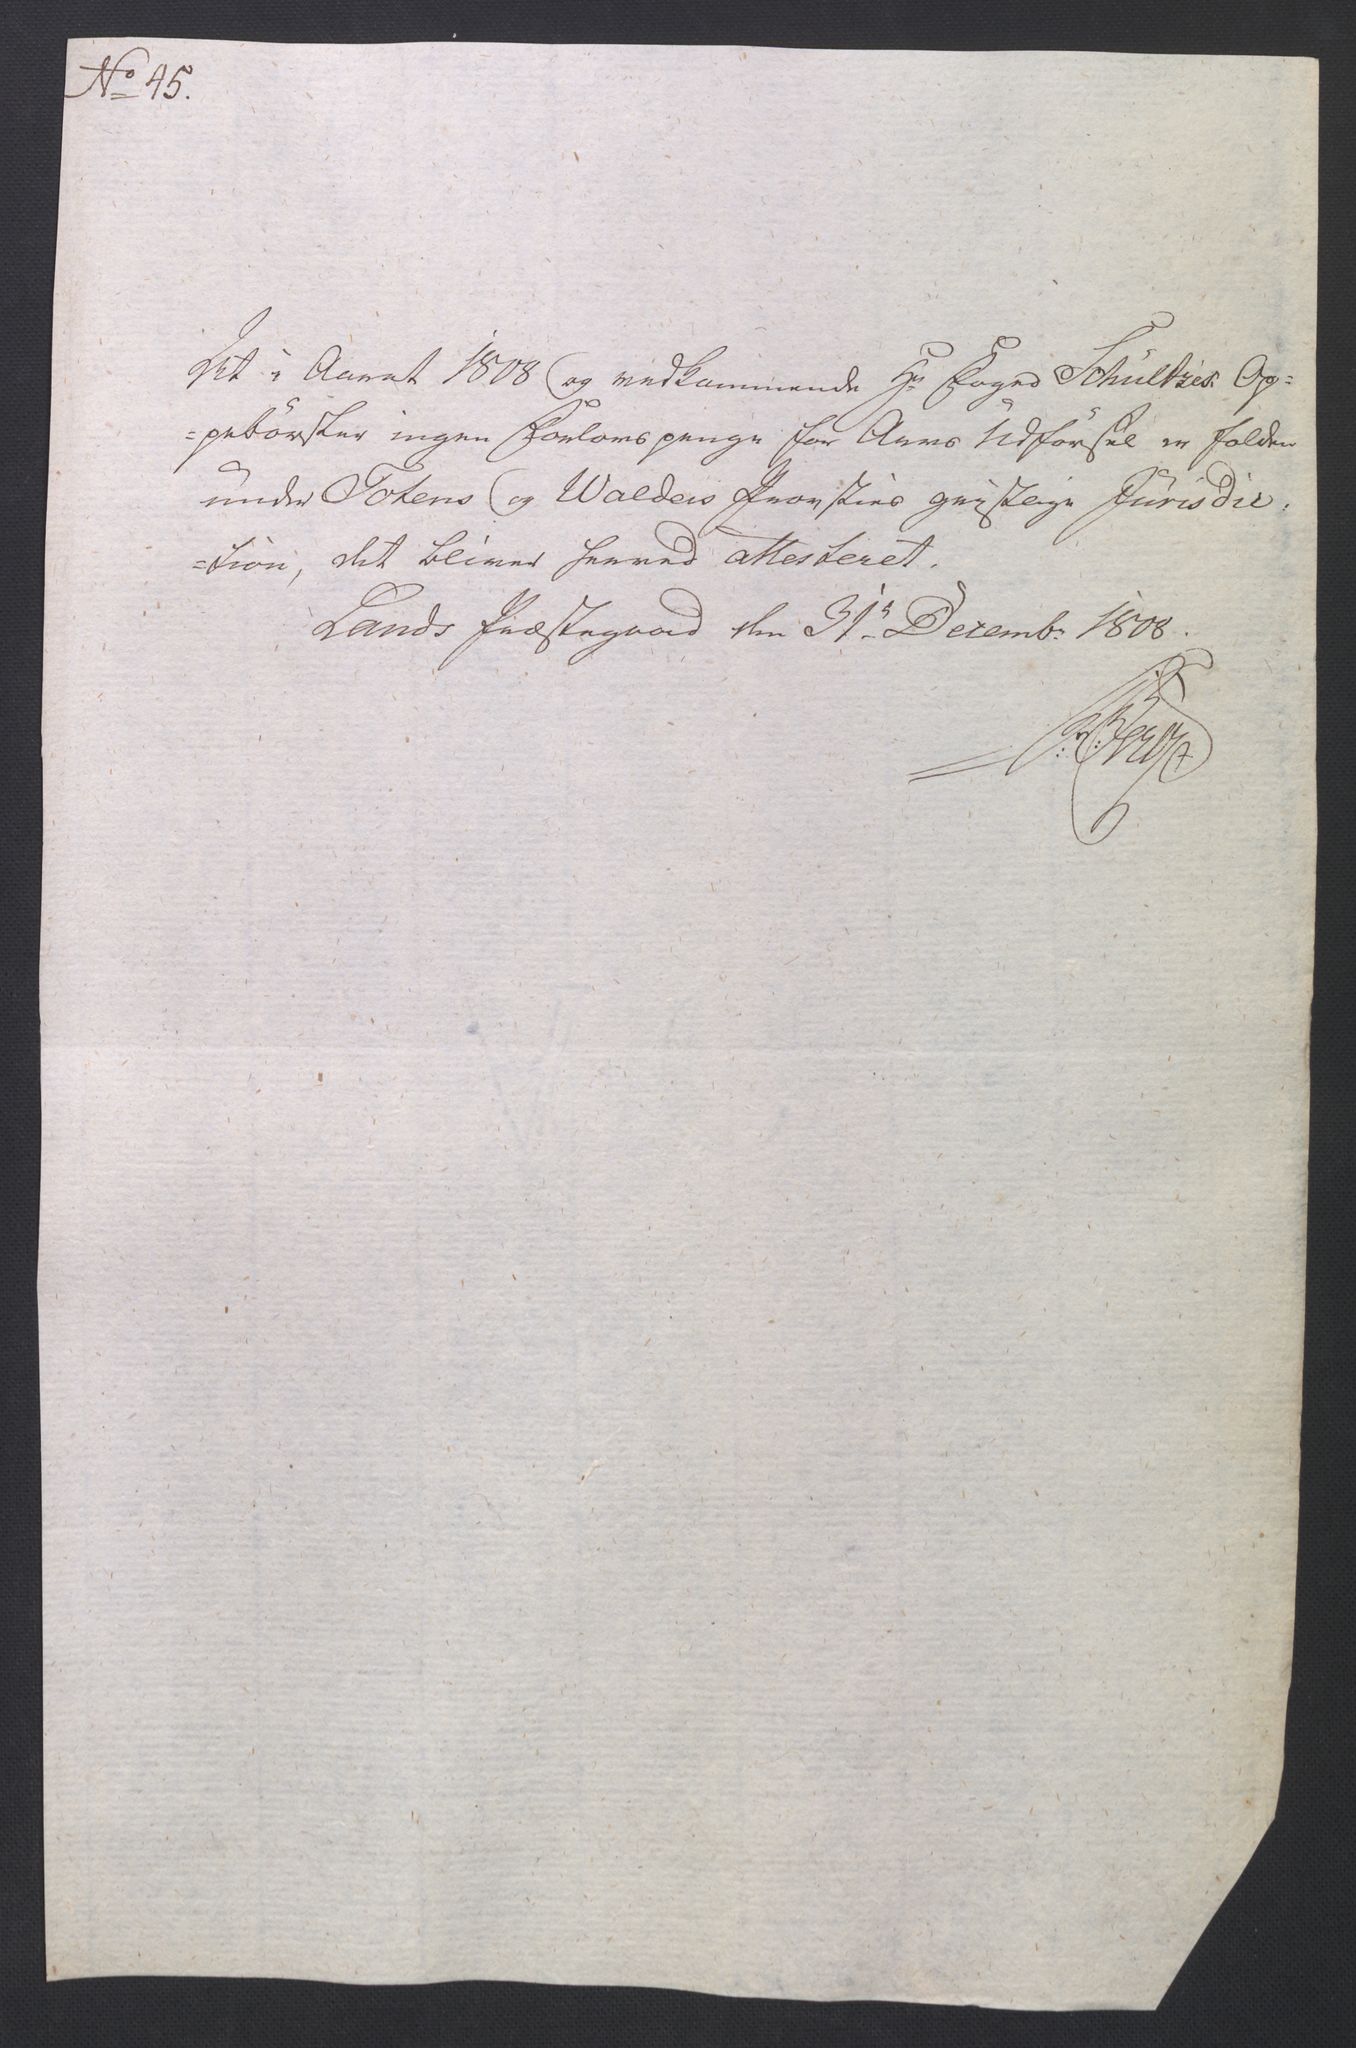 No 45.
At i Aaret 1808 og vedkommende Hr Foged Schültzes Op=
=pebörsler ingen Forlovspenge for Arvs Udförsel er falden
under Totens og Walders Provsties geistlige Jurisdic.
=tion, det bliver herved attesteret.
Lands Præstegaard den 31te Decemb: 1808.
Berg